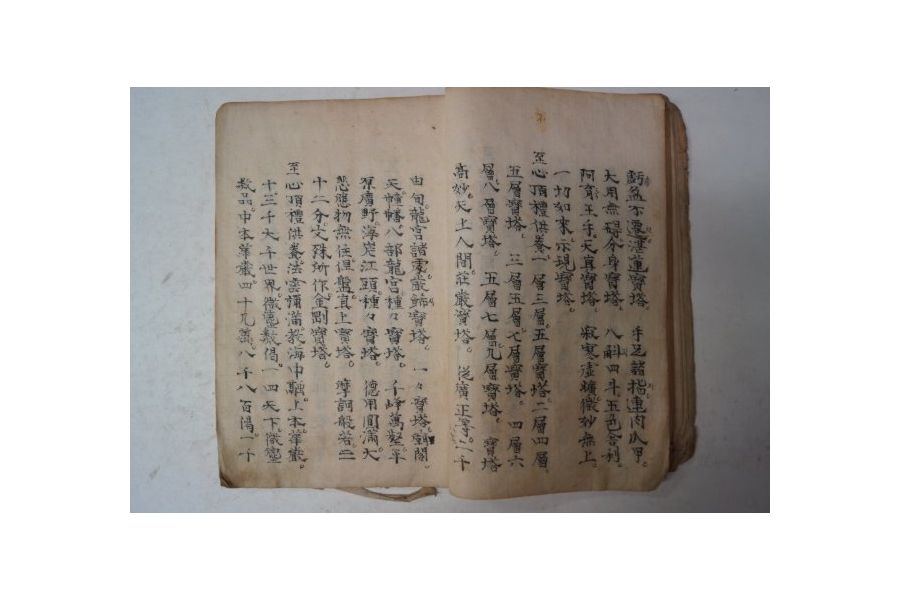 虧盆不遷湛蓮寶塔 手足諸指連肉爪甲
大用無碍分身寶塔 八斛四斗五色舍利
阿育王寺天眞寶塔 寂寞虛曠微妙無上
一切如來示現寶塔
至心頂禮供養一層三層五層寶塔二層四層
五層寶塔 三層五層七層寶塔 四層六
層八層寶塔 五層七層九層寶塔 寶塔
高妙天上人間莊嚴寶塔 從廣正等一千
由旬龍宮諸處嚴飾寶塔 一々寶塔
天幢幡八部龍宮種々寶塔 千峰萬壑平
原廣野海岸江頭種々寶塔 德用圓滿大
悲應物無住涅盤眞上寶塔 摩訶般若二
十二分文殊所作金剛寶塔
至心頂禮供養法雲彌滿敎海中融上本華嚴
十三千大千世界微塵數偈一四天下微塵
數品中本華嚴四十九萬八千八百偈一千